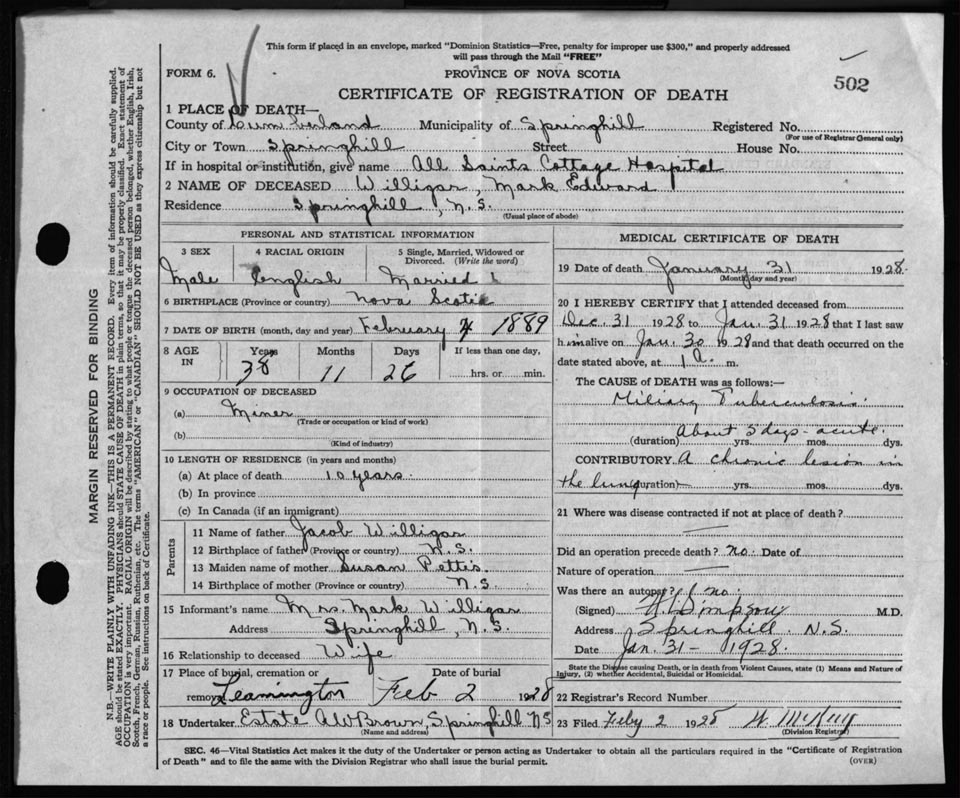 This form if placed in an envelope, marked "Dominion Statistics—Free, penalty for improper use $300," and properly addressed
will pass through the Mail "FREE"
502
FORM 6. PROVINCE OF NOVA SCOTIA
CERTIFICATE OF REGISTRATION OF DEATH
1 PLACE OF DEATH—
County of Cumberland Municipality of Springhill Registered No.
(For use of Registrar General only)
City or Town Springhill Street House No.
If in hospital or institution, give name All Saints Cottage Hospital
2 NAME OF DECEASED Willigar, Mark Edward
Residence Springhill, N.S.
(Usual place of abode)
PERSONAL AND STATISTICAL INFORMATION
3 SEX 4 RACIAL ORIGIN 5 Single, Married, Widowed or
Divorced. (Write the word)
Male English Married
6 BIRTHPLACE (Province or country) Nova Scotia
7 DATE OF BIRTH (month, day and year) February 4 1889
8 AGE IN Years Months Days If less than one day,
38 11 26 hrs. or min.
9 OCCUPATION OF DECEASED
(a) Miner
(Trade or occupation or kind of work)
(b)
(Kind of industry)
10 LENGTH OF RESIDENCE (in years and months)
(a) At place of death 10 years
(b) In province
(c) In Canada (if an immigrant)
Parents
11 Name of father Jacob Willigar
12 Birthplace of father (Province or country) N.S.
13 Maiden name of mother Susan Pettis
14 Birthplace of mother (Province or country) N.S.
15 Informant's name Mrs. Mark Willigar
Address Springhill, N.S.
16 Relationship to deceased Wife
17 Place of burial, cremation or Date of burial
removal Leamington Feb 2 1928
18 Undertaker Estate A W Brown, Springhill NS
(Name and address)
MEDICAL CERTIFICATE OF DEATH
19 Date of death January 31 1928.
(Month, day and year)
20 I HEREBY CERTIFY that I attended deceased from
Dec. 31 1928 to Jan. 31 1928 that I last saw
him alive on Jan. 30 1928 and that death occurred on the
date stated above, at 1 a. m.
The CAUSE OF DEATH was as follows:—
Miliary Tuberculosis.
About 5 days - acute.
(duration) yrs. mos. dys.
CONTRIBUTORY. A chronic lesion in
the lung (duration) yrs. mos. dys.
21 Where was disease contracted if not at place of death?
Did an operation precede death? no. Date of
Nature of operation
Was there an autopsy? no.
(Signed) Simpson M.D.
Address Springhill. N.S.
Date Jan. 31 - 1928.
State the Disease causing Death, or in death from Violent Causes, state (1) Means and Nature of
Injury, (2) whether Accidental, Suicidal or Homicidal.
22 Registrar's Record Number
23 Filed Feby 2 1928
(Division Registrar)
SEC. 46—Vital Statistics Act makes it the duty of the Undertaker or person acting as Undertaker to obtain all the particulars required in the "Certificate of Registration
of Death" and to file the same with the Division Registrar who shall issue the burial permit. (OVER)
MARGIN RESERVED FOR BINDING
N.B.—WRITE PLAINLY WITH UNFADING INK—THIS IS A PERMANENT RECORD. Every item of information should be carefully supplied.
AGE should be stated EXACTLY. PHYSICIANS should STATE CAUSE OF DEATH in plain terms, so that it may be properly classified. Exact statement of
OCCUPATION is very important. RACIAL ORIGIN will be described by stating to what people or tongue the deceased person belonged, whether English, Irish,
Scotch, French, German, Russian, Ruthenian, etc. The terms "AMERICAN" or "CANADIAN" SHOULD NOT BE USED as they express citizenship but not
a race or people. See instructions on back of Certificate.